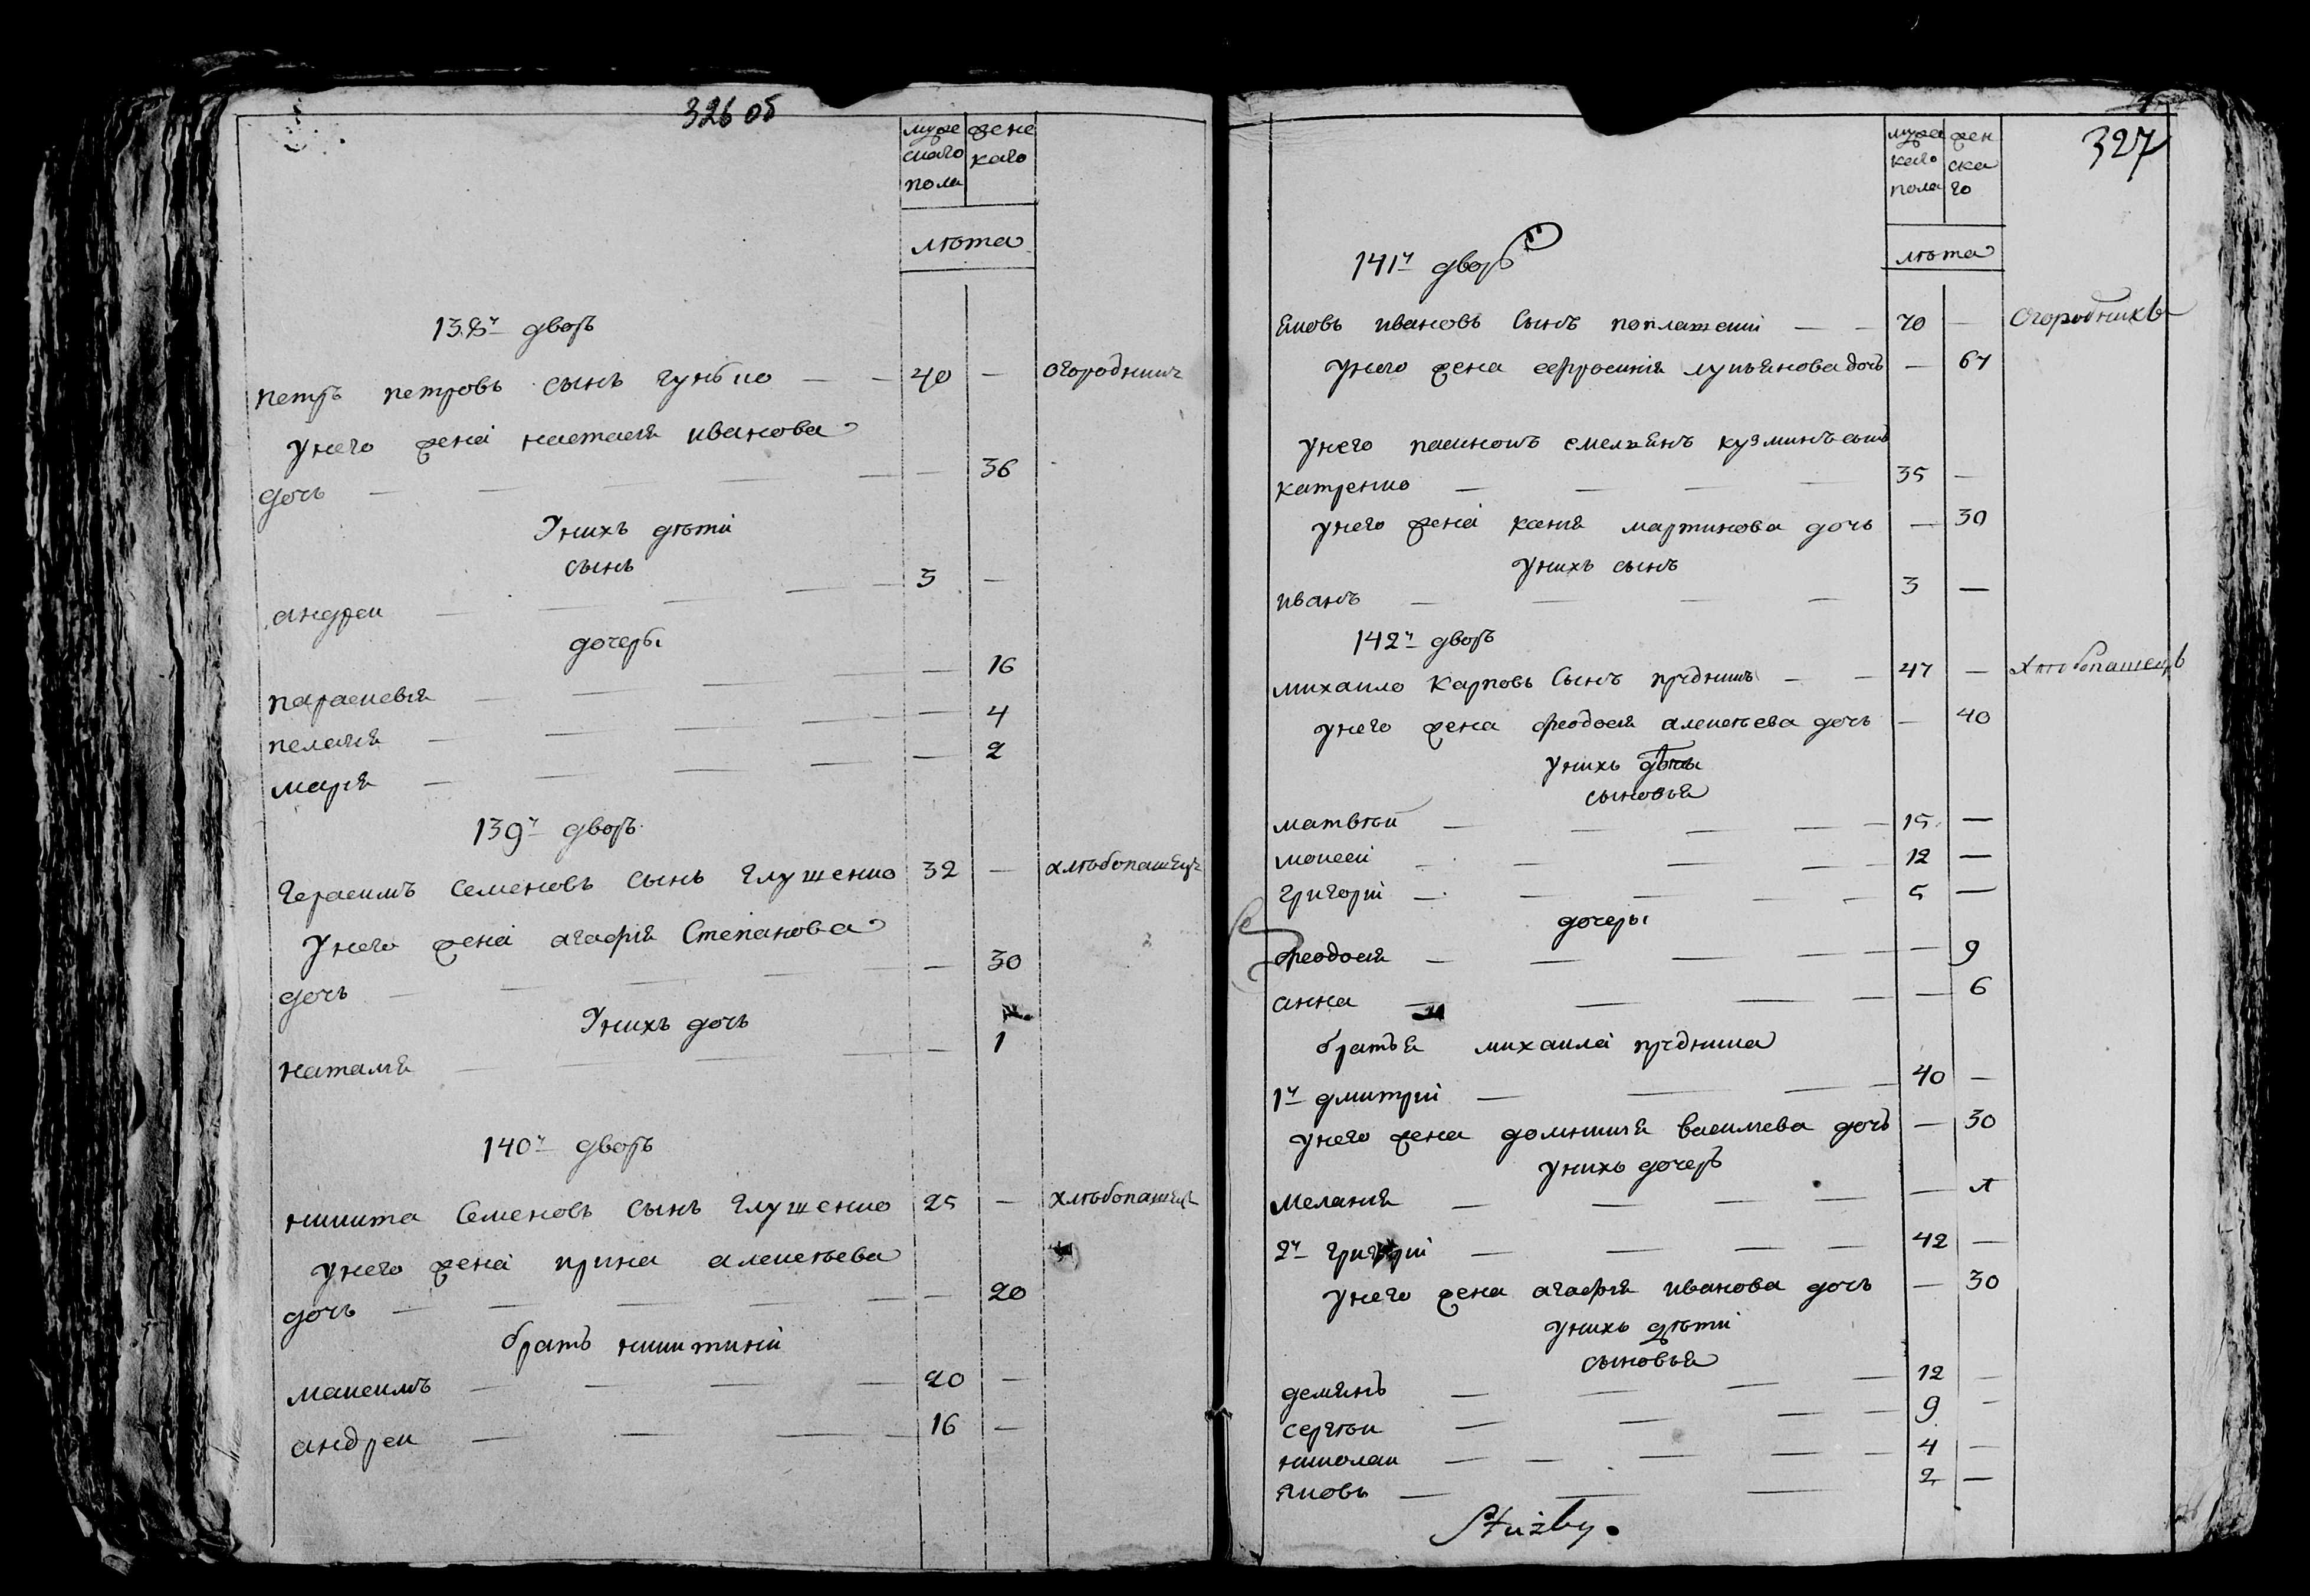 326 об
муже жене
скаго каго
пола
лѣта
138й дворъ
петръ петровъ сынъ гунько — — 40 — огородникъ
унего жена настасія иванова
дочь — — — — — — 36
Унихъ дѣти
сынъ
андреи — — — — — 3 —
дочеры
параскевія — — — — — 16
пелагія — — — — — — 4
марія — — — — — — 2
139й дворъ
герасимъ семеновъ сынъ глущенко 32 — хлѣбопашецъ
Унего жена агафія Степанова
дочь — — — — — 30
Унихъ дочь
наталія — — — — 1
140й дворъ
никита Семеновъ сынъ глущенко 25 — хлѣбопашецъ
унего жена ирина алексѣева
дочь — — — — — — 20
братъ никитинъ
максимъ — — — — 20 —
андреи — — — — — 16 —
327
муже жен
каго ска
пола го
лѣта
141й дворъ
яковъ ивановъ Сынъ — — 70 — Огородникъ
Унего жена ефросинія лукъянова дочь — 67
Унего пасинокъ емельянъ кузминъ сынъ
катренко — — — — 35 —
унего жена ксенія мартинова дочь — 30
Унихъ сынъ
иванъ — — — — 3 —
142й дворъ
михаило Карповъ Сынъ прудникъ — — 47 — Хлѣбопашецъ
унего жена феодосія алексѣева дочь — 40
Унихъ дѣты
сыновья
матвѣй — — — — — 15 —
моисеи — — — — — 12 —
григорій — — — — — 5 —
дочеры
феодосія — — — — — — 9
анна — — — — — 6
братья михаила прудника
1й дмитрій — — — — 40 —
унего жена домникія василіева дочь — 30
унихъ дочеръ
меланія — — — — — 1
2й григорій — — — — 42 —
унего жена агафія иванова дочь — 30
унихъ дѣти
сыновья
демянъ — — — — 12 —
сергѣи — — — — 9 —
николаи — — — — — 4 —
яковъ — — — 2 —
Służby.